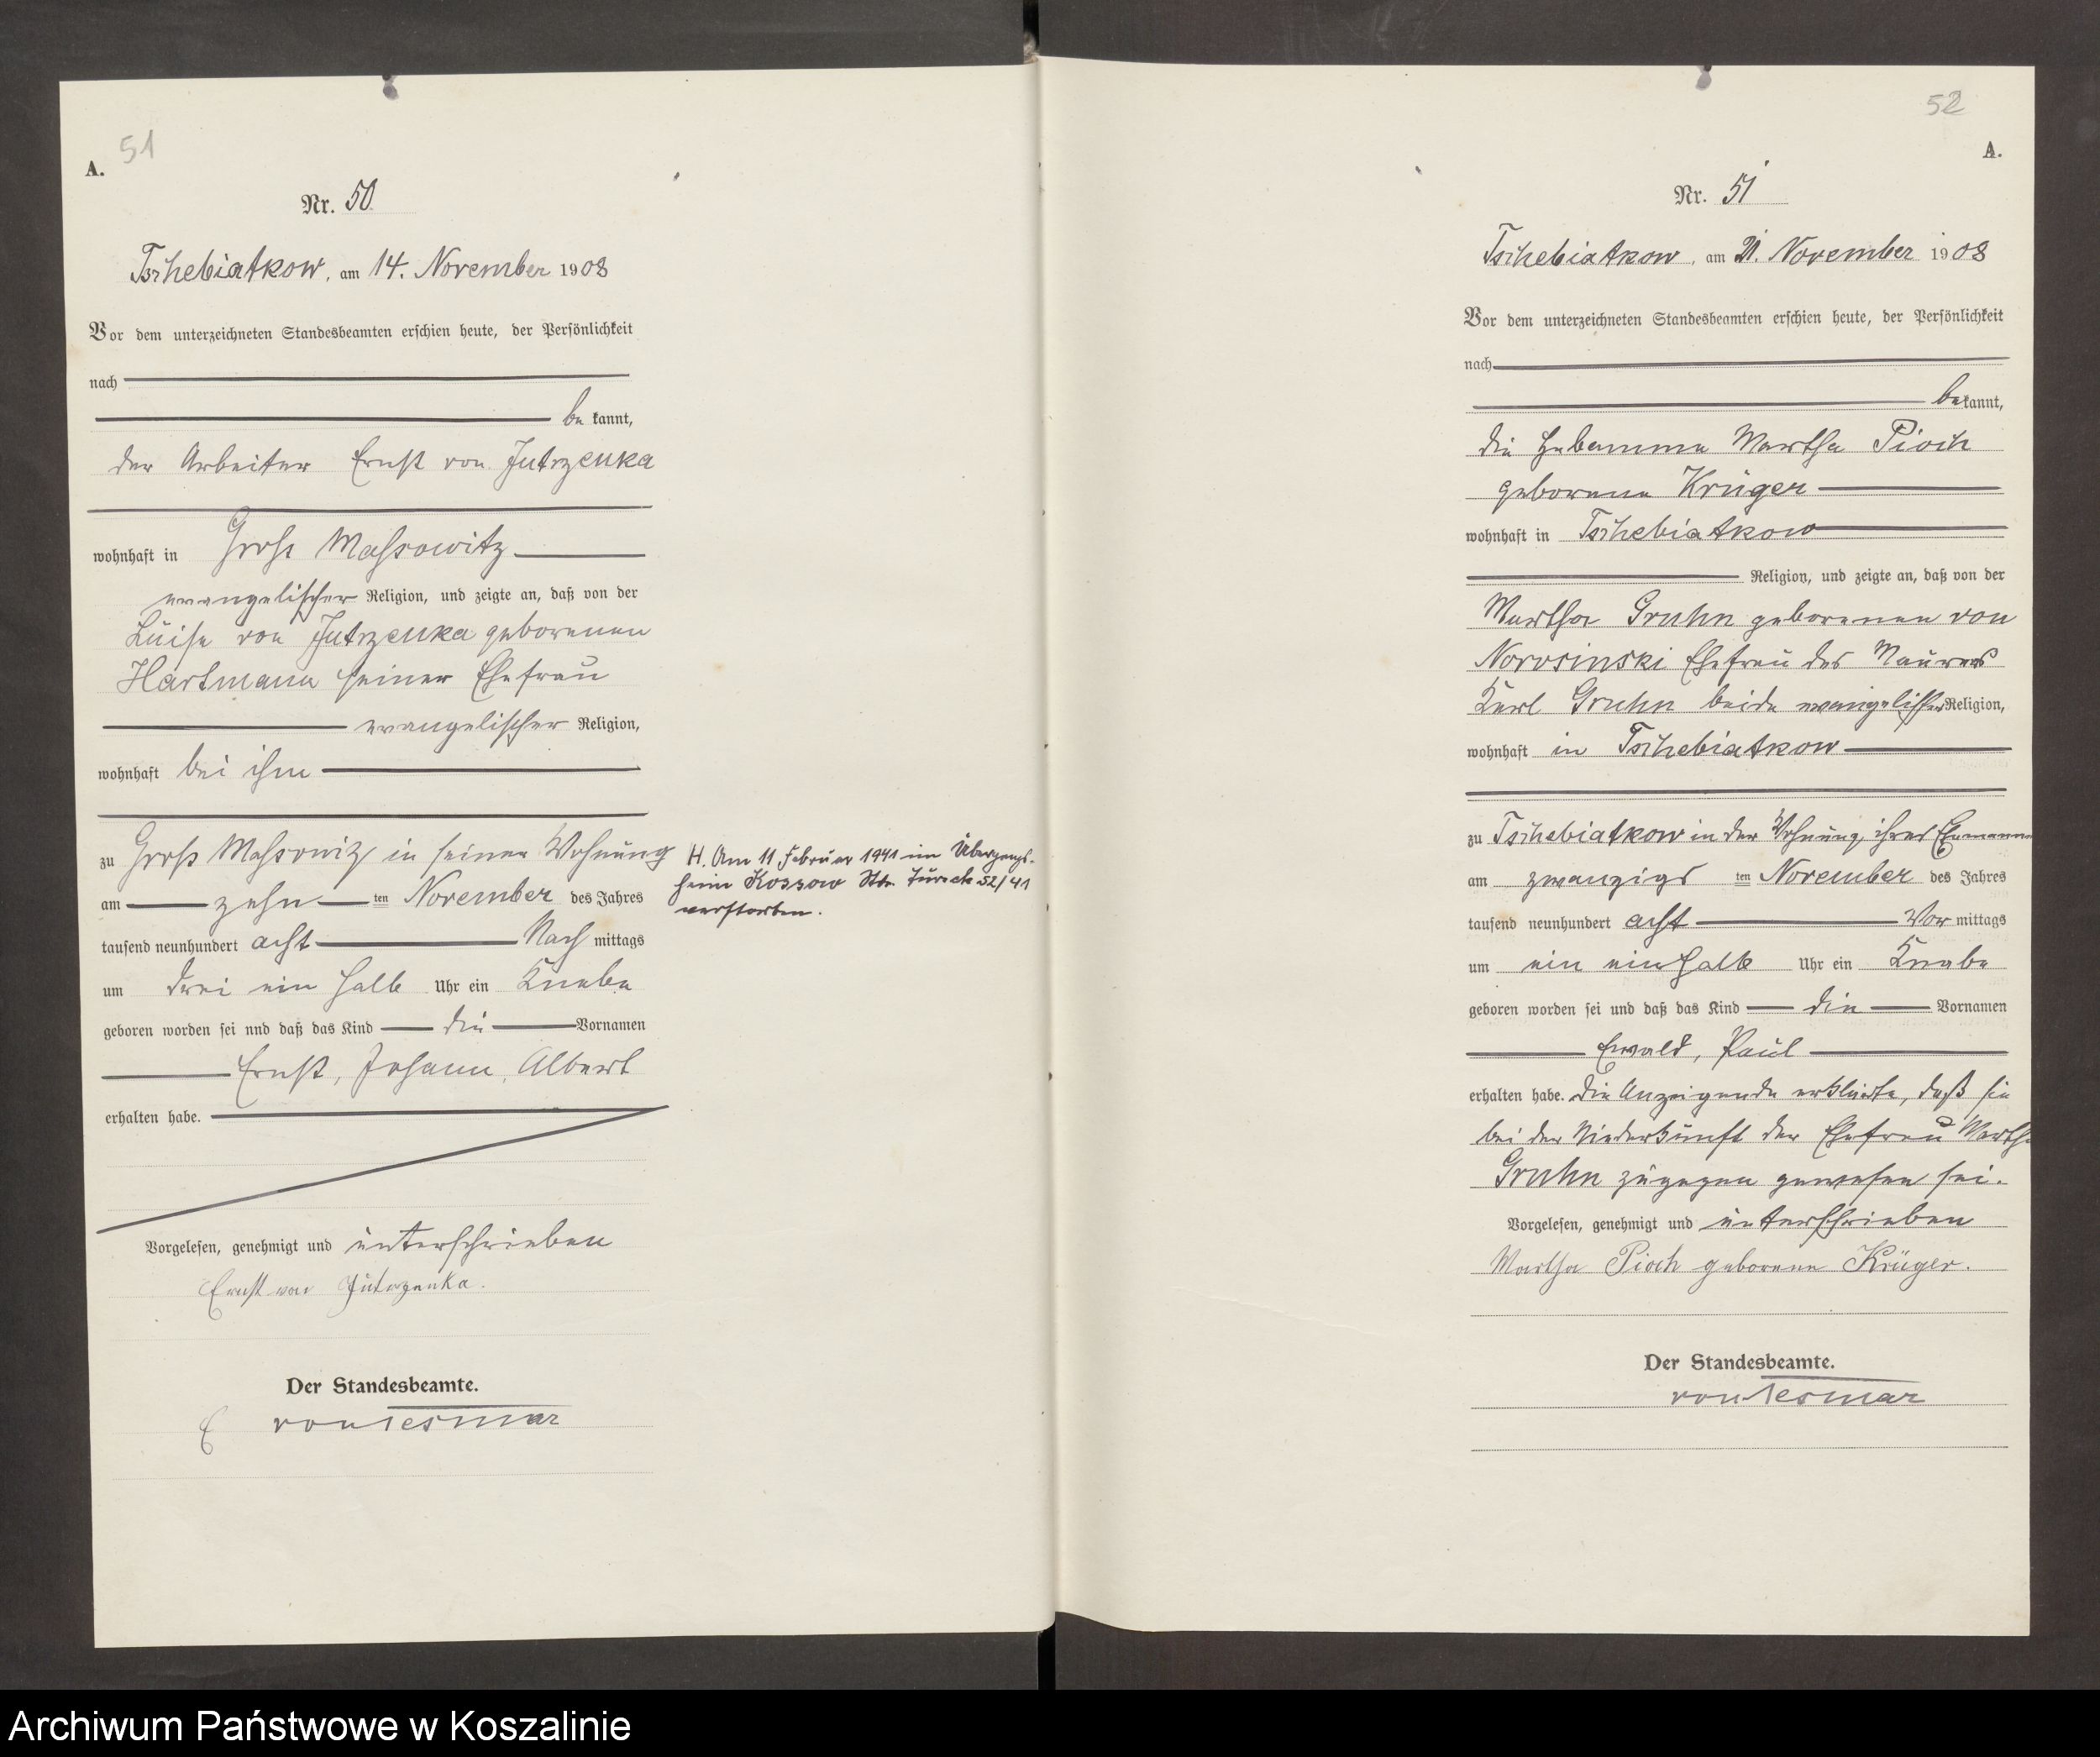 51
A.
Nr. 50
Tschebiatkow, am 14. November 1908
Vor dem unterzeichneten Standesbeamten erschien heute, der Persönlichkeit
nach
be kannt,
der Arbeiter Ernst von Jutrzenka
wohnhaft in Groß Massowitz
evangelischer Religion, und zeigte an, daß von der
Luise von Jutrzenka geborenen
Hartmann seiner Ehefrau
evangelischer Religion,
wohnhaft bei ihm
zu Groß Massowitz in seiner Wohnung
am zehn ten November des Jahres
tausend neunhundert acht Nach mittags
um drei ein halb Uhr ein Knabe
geboren worden sei nnd daß das Kind die Vornamen
Ernst, Johann, Albert
erhalten habe.
Vorgelesen, genehmigt und unterschrieben
Ernst von Jutrzenka.
Der Standesbeamte.
von Tesmar
H. Am 11 Februar 1941 im Übergangs-
heim Kossow 52/41
verstorben.
52
A.
Nr. 51
Tschebiatkow, am 21. November 1908
Vor dem unterzeichneten Standesbeamten erschien heute, der Persönlichkeit
nach
bekannt,
die Hebamme Martha Pioch
geborene Krüger
wohnhaft in Tschebiatkow
Religion, und zeigte an, daß von der
Martha Gruhn geborenen von
Norosinski Ehefrau des Maurers
Karl Gruhn beide evangelischer Religion,
wohnhaft in Tschebiatkow
zu Tschebiatkow in der Wohnung ihres Ehemannes
am zwanzigs ten November des Jahres
tausend neunhundert acht Vor mittags
um ein ein halb Uhr ein Knabe
geboren worden sei und daß das Kind die Vornamen
Ewald, Paul
erhalten habe. Die Anzeigende erklärte, daß sie
bei der Niederkunft der Ehefrau Martha
Gruhn zugegen gewesen sei.
Vorgelesen, genehmigt und unterschrieben
Martha Pioch geborene Krüger.
Der Standesbeamte.
von Tesmar
Archiwum Państwowe w Koszalinie